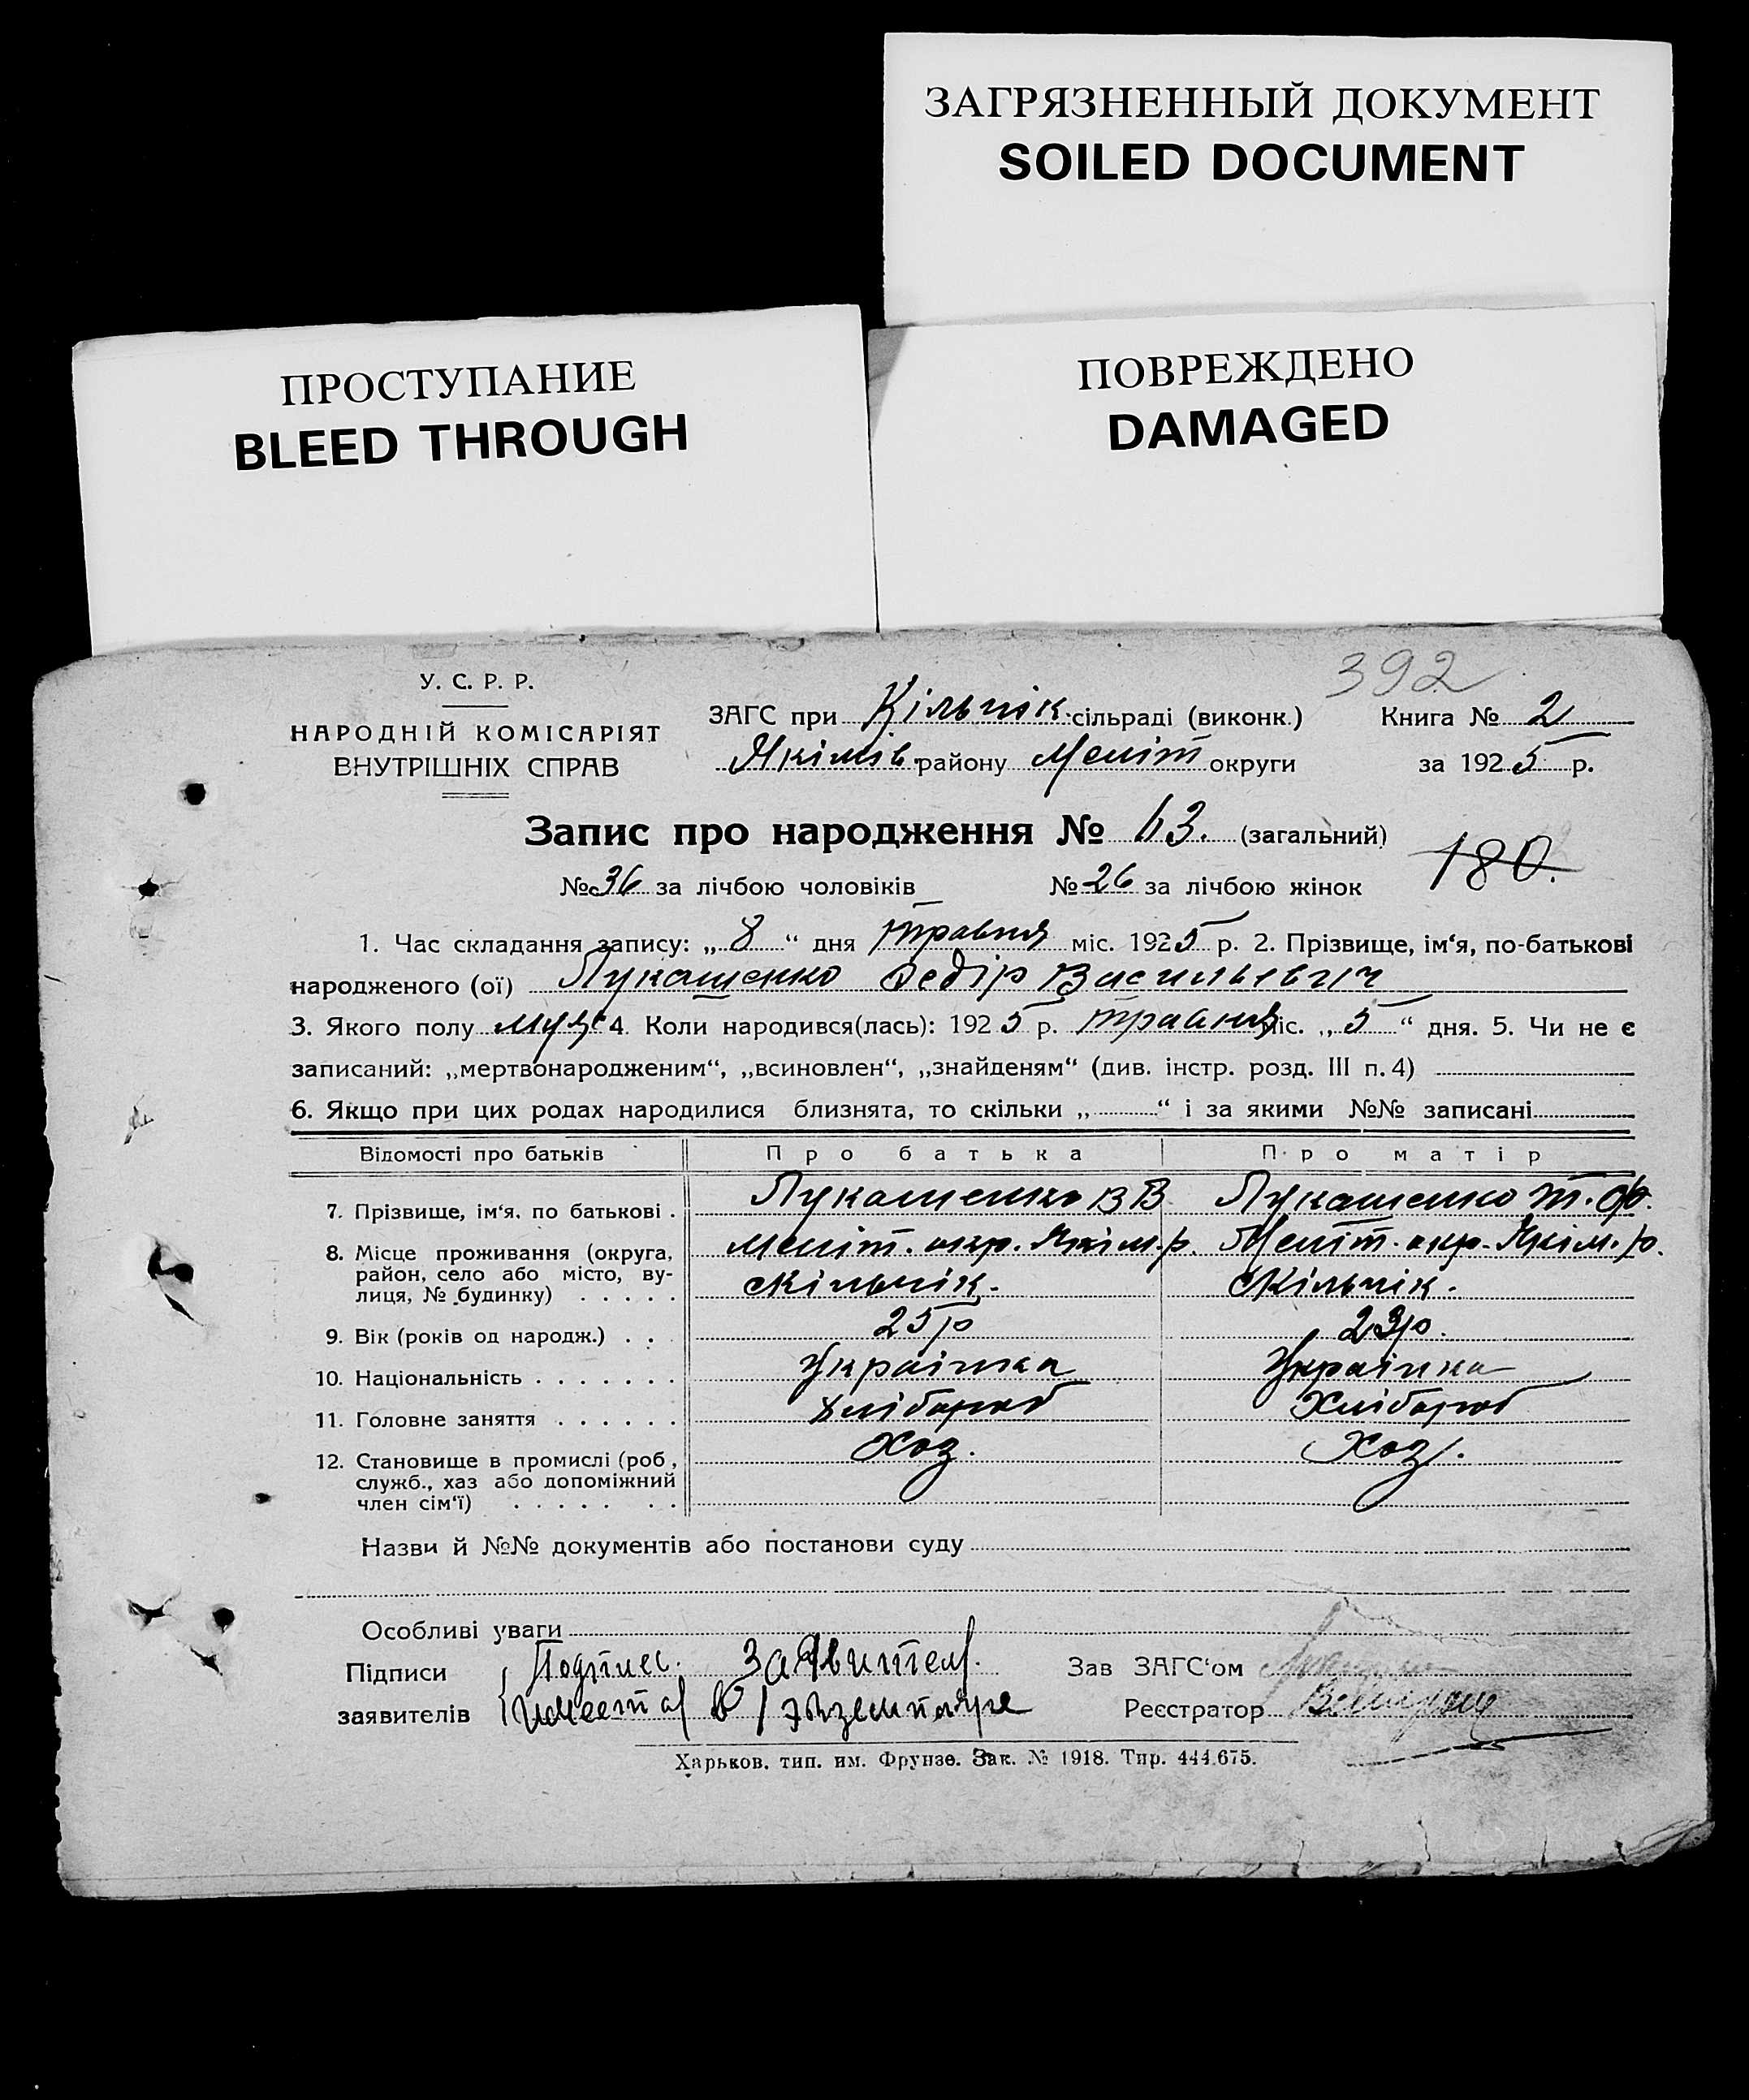 ЗАГРЯЗНЕННЫЙ ДОКУМЕНТ
SOILED DOCUMENT
ПРОСТУПАНИЕ
BLEED THROUGH
ПОВРЕЖДЕНО
DAMAGED
392
У. С. Р. Р.
НАРОДНІЙ КОМІСАРІЯТ
ВНУТРІШНІХ СПРАВ
ЗАГС при Кільчік. сільраді (виконк.) Книга № 2
Якімів. району Меліт округи за 1925 р.
Запис про народження № 63. (загальний)
180.
№ 36 за лічбою чоловіків № 26 за лічбою жінок
1. Час складання запису: „8“ дня травня міс. 1925 р. 2. Прізвище, ім‘я, по-батькові
народженого (ої) Лукашенко Федір Васильевич
3. Якого полу муж 4. Коли народився(лась): 1925 р. травня міс. „5“ дня. 5. Чи не є
записаний: „мертвонародженим“, „всиновлен“, „знайденям“ (див. інстр. розд. III п. 4)
6. Якщо при цих родах народилися близнята, то скільки „ “ і за якими №№ записані
Відомості про батьків Про батька Про матір
7. Прізвище, ім‘я, по батькові . Лукашенко В В. Лукашенко Т. Ф.
8. Місце проживання (округа, район, село або місто, вулиця, № будинку) . . . . . Меліт. окр. Якім. р. Меліт. окр. Якім. р.
с Кільчік. с Кільчік.
9. Вік (років од народж.) . . 25 р 23 р.
10. Національність . . . . . . . Українка Українка
11. Головне заняття . . . . . . Хлібороб Хлібороб
12. Становище в промислі (роб., служб., хаз або допоміжний член сім‘ї) . . . . . . . Хоз. Хоз.
Назви й №№ документів або постанови суду
Особливі уваги
Підписи заявителів Подпись заявителя. Зав ЗАГС‘ом
имеется в 1 экземпляре Реєстратор
Харьков. тип. им. Фрунзе. Зак. № 1918. Тир. 444.675.